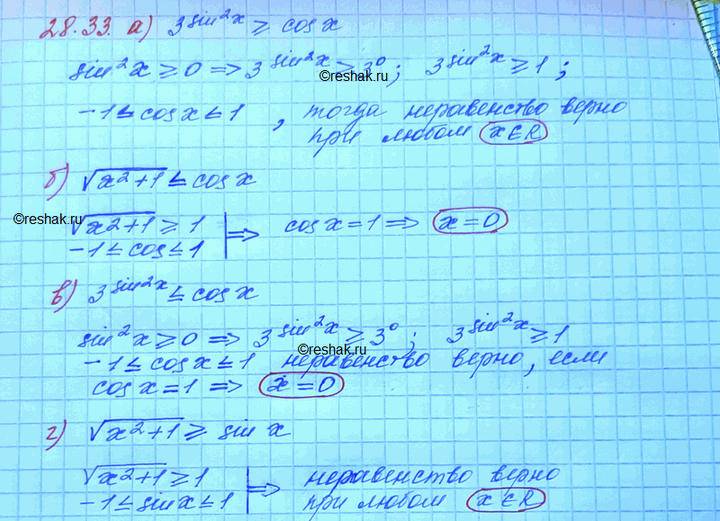 28.33. а) 3^sin²x ≥ cos x
sin²x ≥ 0 ⇒ 3^sin²x ≥ 3⁰; 3^sin²x ≥ 1;
©reshak.ru
-1 ≤ cos x ≤ 1, тогда неравенство верно
при любом x∈R
б) √x²+1 ≤ cos x
©reshak.ru
√x²+1 ≥ 1
-1 ≤ cos ≤ 1 ⇒ cos x = 1 ⇒ x=0
в) 3^sin²x ≤ cos x
sin²x ≥ 0 ⇒ 3^sin²x ≥ 3⁰; 3^sin²x ≥ 1
©reshak.ru
-1 ≤ cos x ≤ 1 неравенство верно, если
cos x = 1 ⇒ x=0
г) √x²+1 ≥ sin x
√x²+1 ≥ 1 ⇒ неравенство верно
-1 ≤ sin x ≤ 1 при любом x∈R